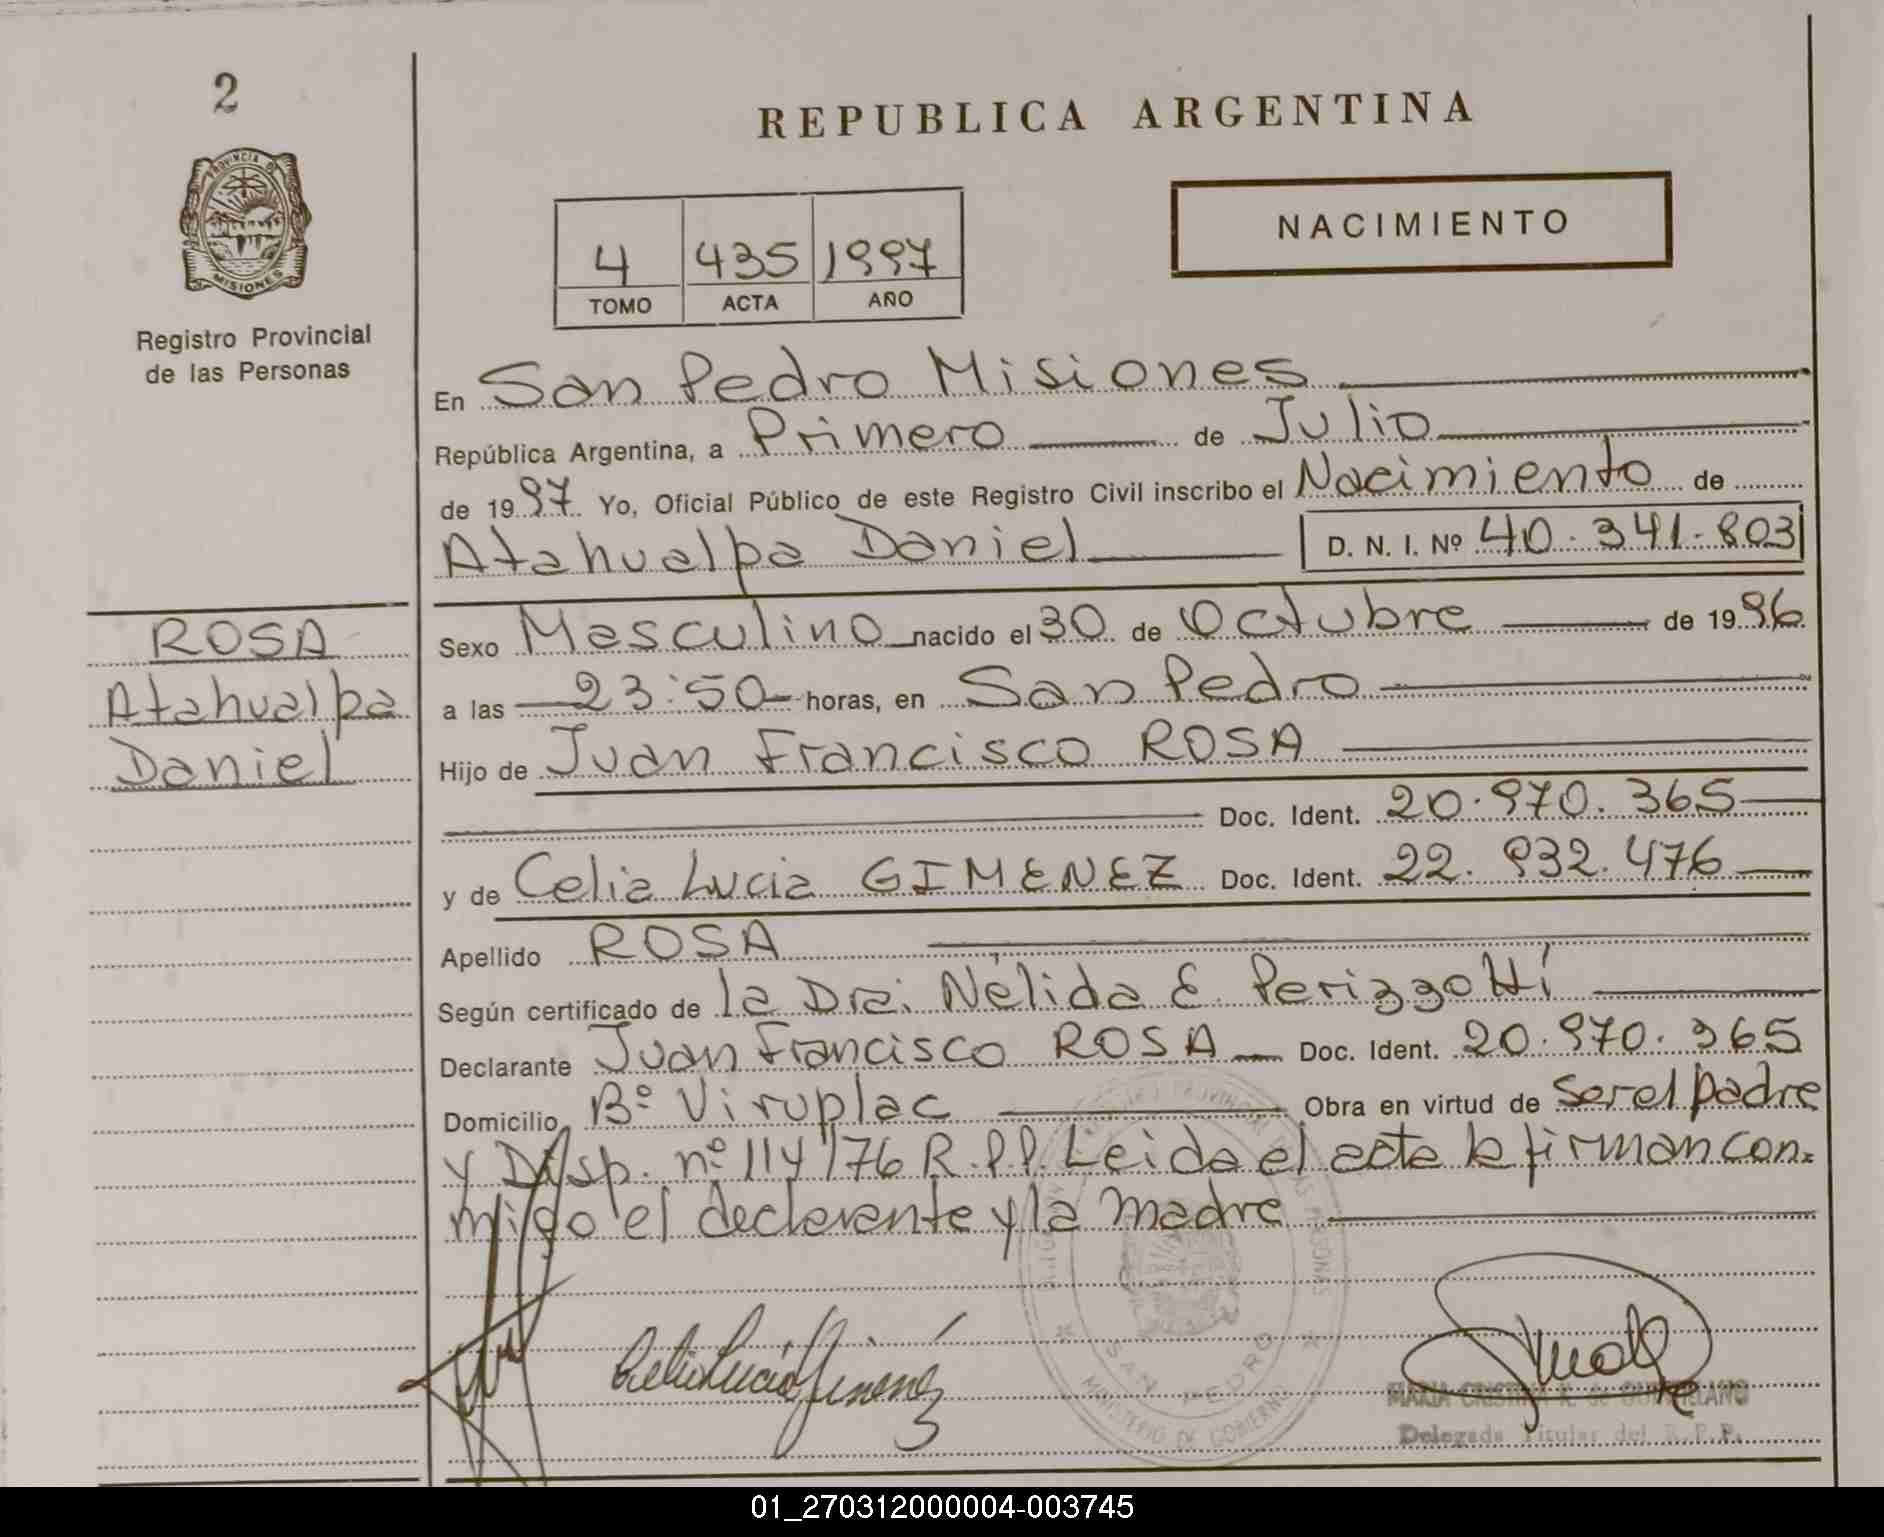 2
PROVINCIA DE
MISIONES
Registro Provincial
de las Personas
REPUBLICA ARGENTINA
NACIMIENTO
4 435 1997
TOMO ACTA AÑO
En San Pedro Misiones
República Argentina, a Primero de Julio
de 1997 Yo, Oficial Público de este Registro Civil inscribo el Nacimiento de
Atahualpa Daniel D. N. I. Nº 40.341.803
ROSA
Atahualpa
Daniel
Sexo Masculino nacido el 30 de Octubre de 1996
a las 23:50 horas, en San Pedro
Hijo de Juan Francisco ROSA
Doc. Ident. 20.970.365
y de Celia Lucia GIMENEZ Doc. Ident. 22.932.476
Apellido ROSA
Según certificado de la Dra. Nélida E. Perizzotti
Declarante Juan Francisco ROSA Doc. Ident. 20.970.365
Domicilio Bº Viruplac Obra en virtud de ser el padre
y Disp. nº 114/76 R.P.P. Leida el acta la firman con-
migo el declarante y la madre
SAN PEDRO
MINISTERIO DE GOBIERNO
Celia Lucia Gimenez
MARIA CRISTINA
Delegada Titular del R.P.P.
01_270312000004-003745